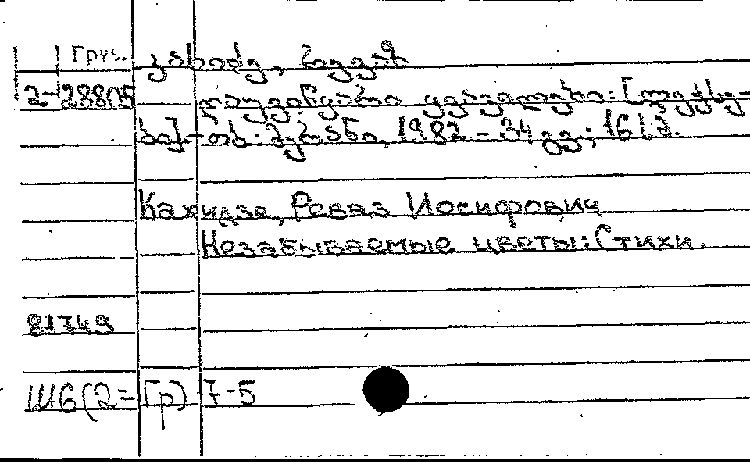 Груз. კახიძე, რევაზ
2-28805 დაუვიწყარი ყვავილები: [ლექსე-
ბი].-თბ.: მერანი, 1982.-34 გვ.; 16 სმ.
Кахидзе, Реваз Иосифович
Незабываемые цветы: Стихи.
81749
Ш6(2=Гр) 7-5